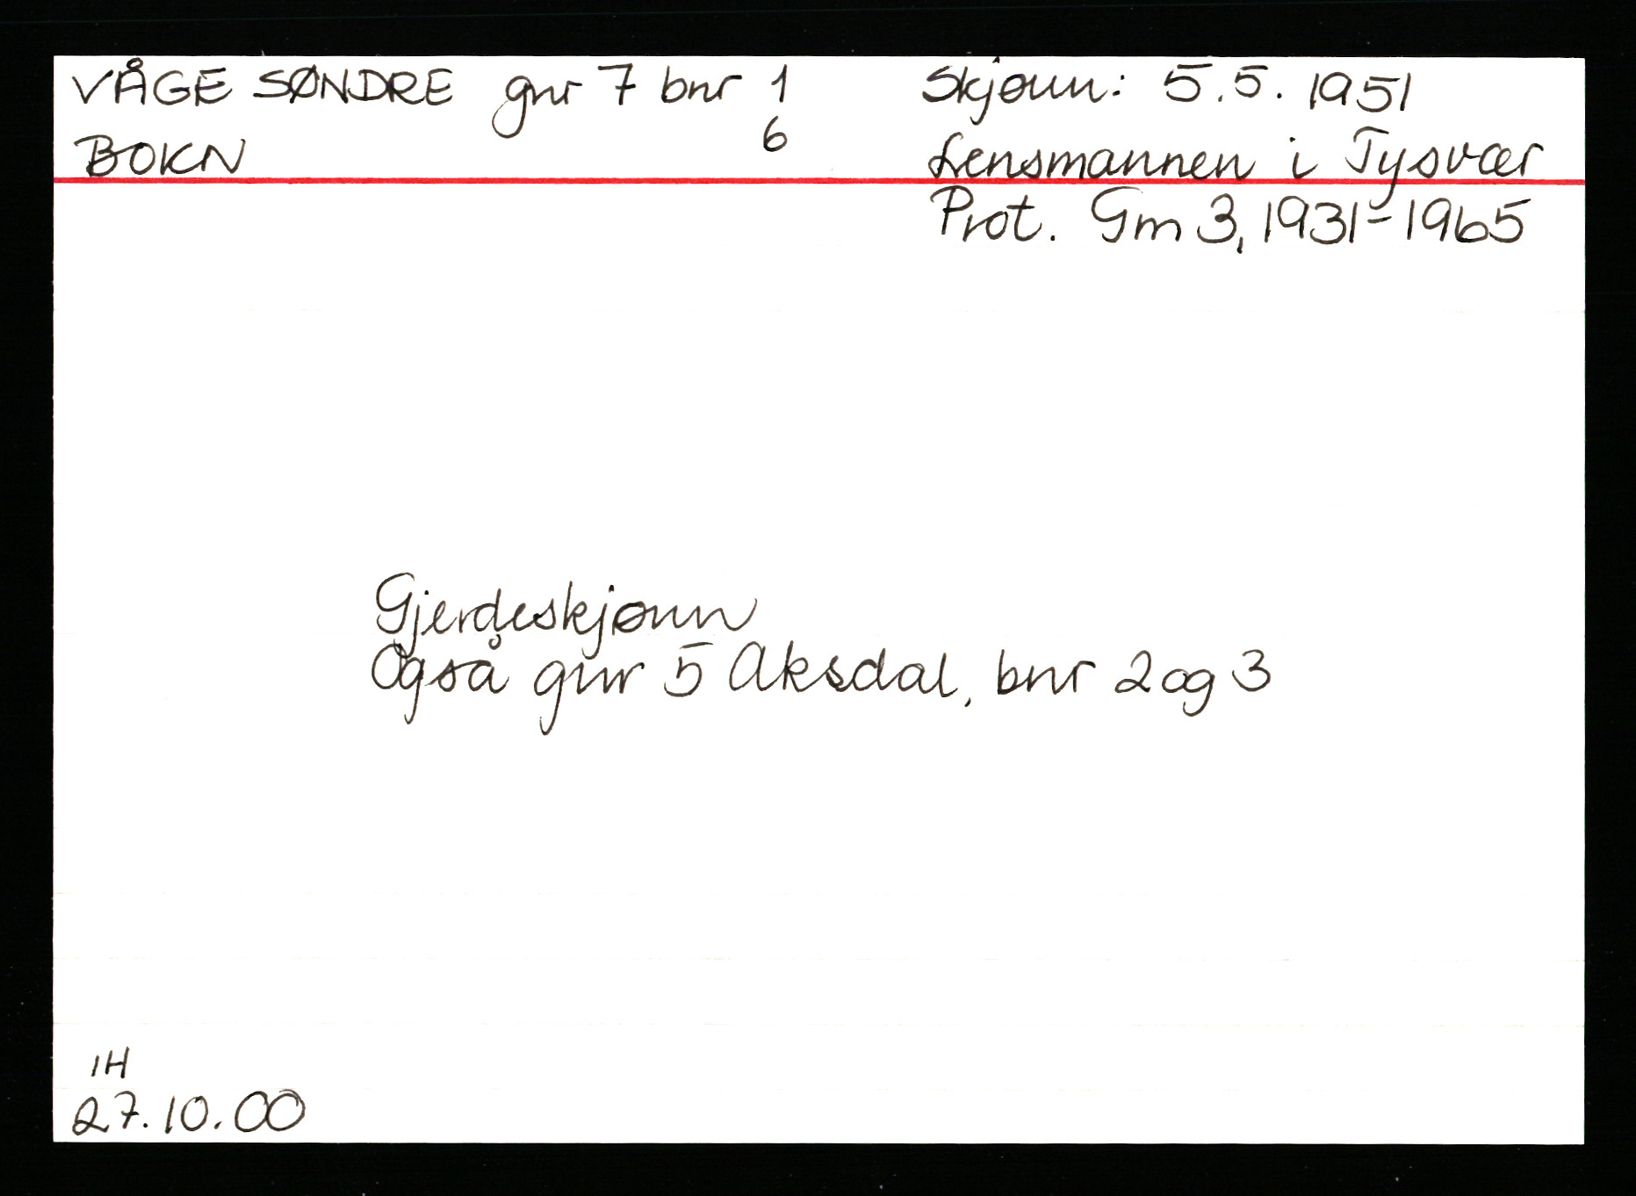 VÅGE SØNDRE gnr 7 bnr 1
6
BOKN
Skjønn: 5.5. 1951
Lensmannen i Tysvær
Prot. Gm 3, 1931-1965
Gjerdeskjønn
Også gnr 5 Aksdal, bnr 2 og 3
IH
27.10.00